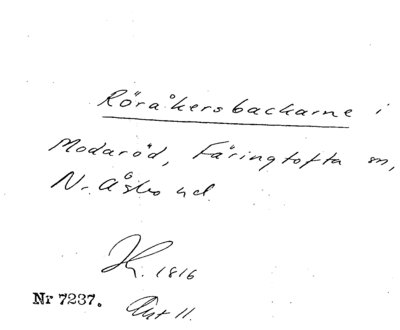 Röråkersbackarne i
Modaröd, Färingtofta sn,
N. Åsbo hd.
1816
Nr 7237.
Akt 11.